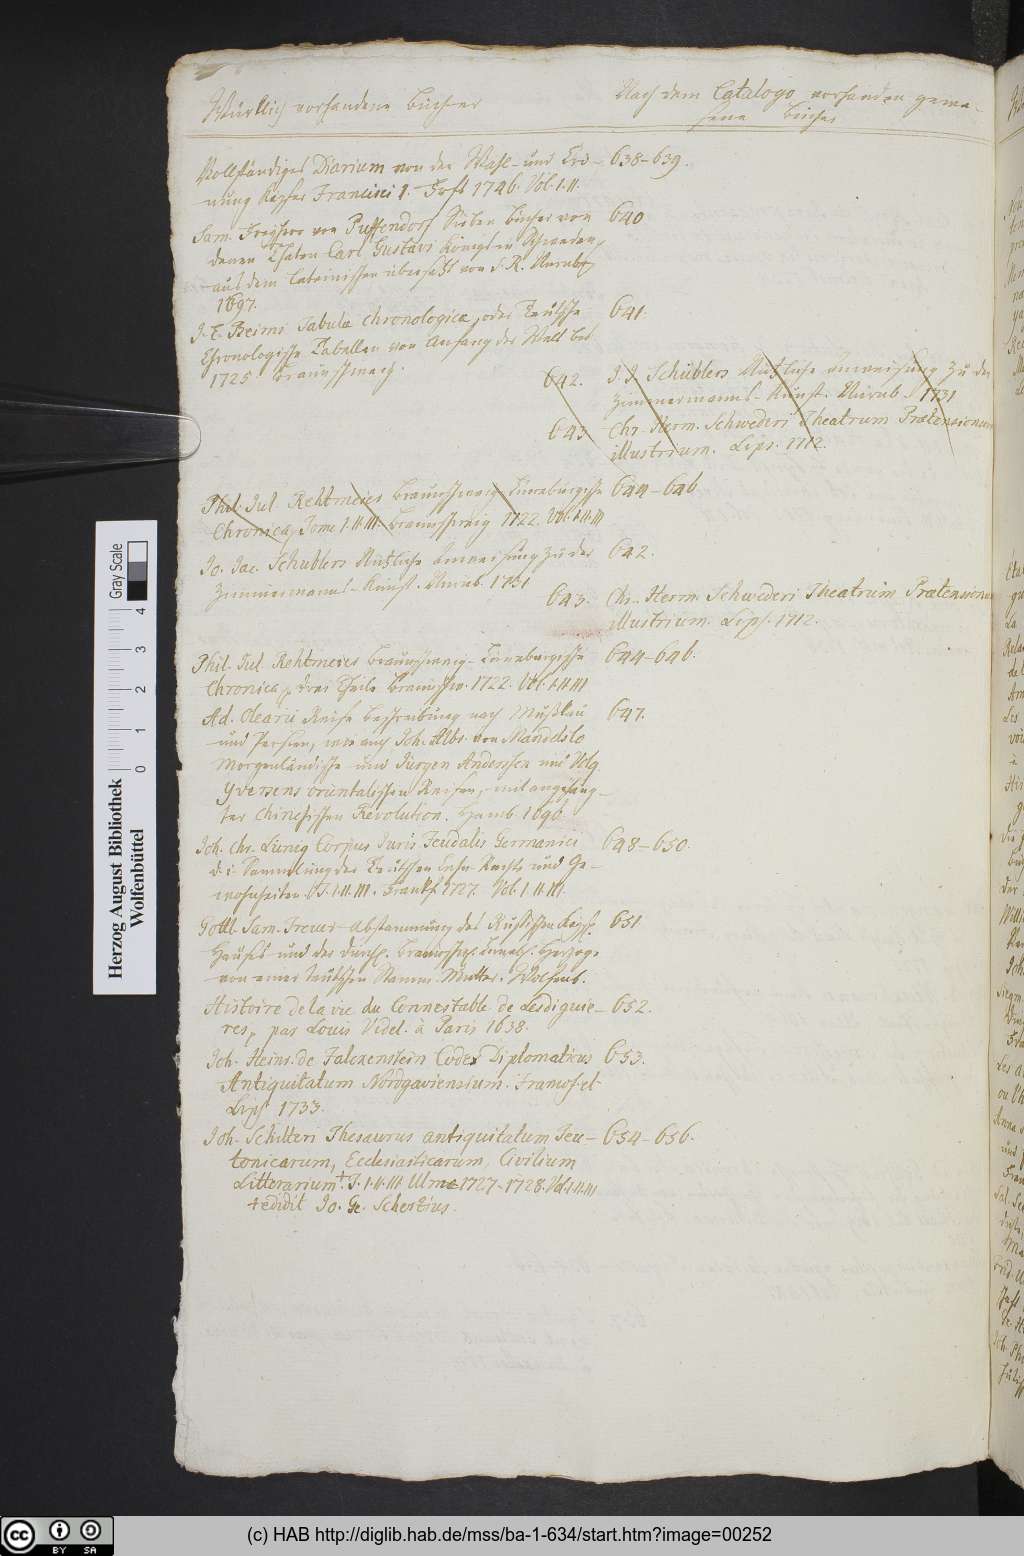 Würklich vorhandene Bücher
Nach dem Catalogo vorhanden gewe-
sene Bücher
Vollständiges Diarium von der Wahl- und Crö- 638-639.
nung Kaysers Francisci I. Frft 1746. Vol. I. II.
Sam. Freyherr von Puffendorf Sieben Bücher von 640
denen Thaten Carl Gustavs Königs in Schweden,
aus dem Lateinischen übersetzt von S. R. Nürnb.
1697.
J. C. Beims Tabulæ chronologicæ, oder Teutsche 641.
Chronologische Tabellen von Anfang der Welt bis
1725. Braunschweig.
642. J. J. Schüblers Nützliche Anweisung zu der
Zimmermanns-Kunst. Nürnb. 1731
643 Chr. Herm. Schwederi Theatrum Prætensionum
illustrium. Lips. 1712.
Phil. Jul. Rehtmeiers Braunschweig-Lüneburgische 644-646
Chronica, Tome I. II. III. Braunschweig 1722. Vol. I. II. III
Jo. Jac. Schüblers Nützliche Anweisung zu der 642.
Zimmermanns-Kunst. Nürnb. 1731
643. Chr. Herm. Schwederi Theatrum Prætensionum
illustrium. Lips. 1712.
Phil. Jul. Rehtmeiers Braunschweig-Lüneburgische 644-646.
Chronica, drei Theile Braunschw. 1722. Vol. I. II. III
Ad. Olearii Reise Beschreibung nach Mußkau 647.
und Persien, wie auch Joh. Albr. von Mandelslo
Morgenländische und Jürgen Andersen und Volq.
Yversens orientalischen Reisen, mit angehäng-
ter Chinesischen Revolution. Hamb. 1696.
Joh. Chr. Lünig Corpus Juris Feudalis Germanici 648-650.
d. i. Sammlung der Teutschen Lehn Rechte und Ge-
wohnheiten. T. I. II. III. Frankf. 1727. Vol. I. II. III.
Gottl. Sam. Treuer Abstammung des Russischen Keyß. 651
Hauses und der Durchl. Braunschw. Lüneb. Herzoge
von einer teutschen Stamm-Mutter. Wolfenb.
Histoire de la vie du Connestable de Lesdiguie- 652.
res, par Louis Videl. à Paris 1638.
Joh. Heinr. de Falckenstein Codex Diplomaticus 653.
Antiquitatum Nordgaviensium. Francf. et
Lips. 1733.
Joh. Schilteri Thesaurus antiquitatum Teu- 654-656.
tonicarum, Ecclesiasticarum, Civilium
Litterarium.† T. I. II. III. Ulmæ 1727-1728. Vol. I. II. III
† edidit Jo. Ge. Schertzius.
Herzog August Bibliothek
Wolfenbüttel
Gray Scale
0 1 2 3 4
cc BY SA
(c) HAB http://diglib.hab.de/mss/ba-1-634/start.htm?image=00252